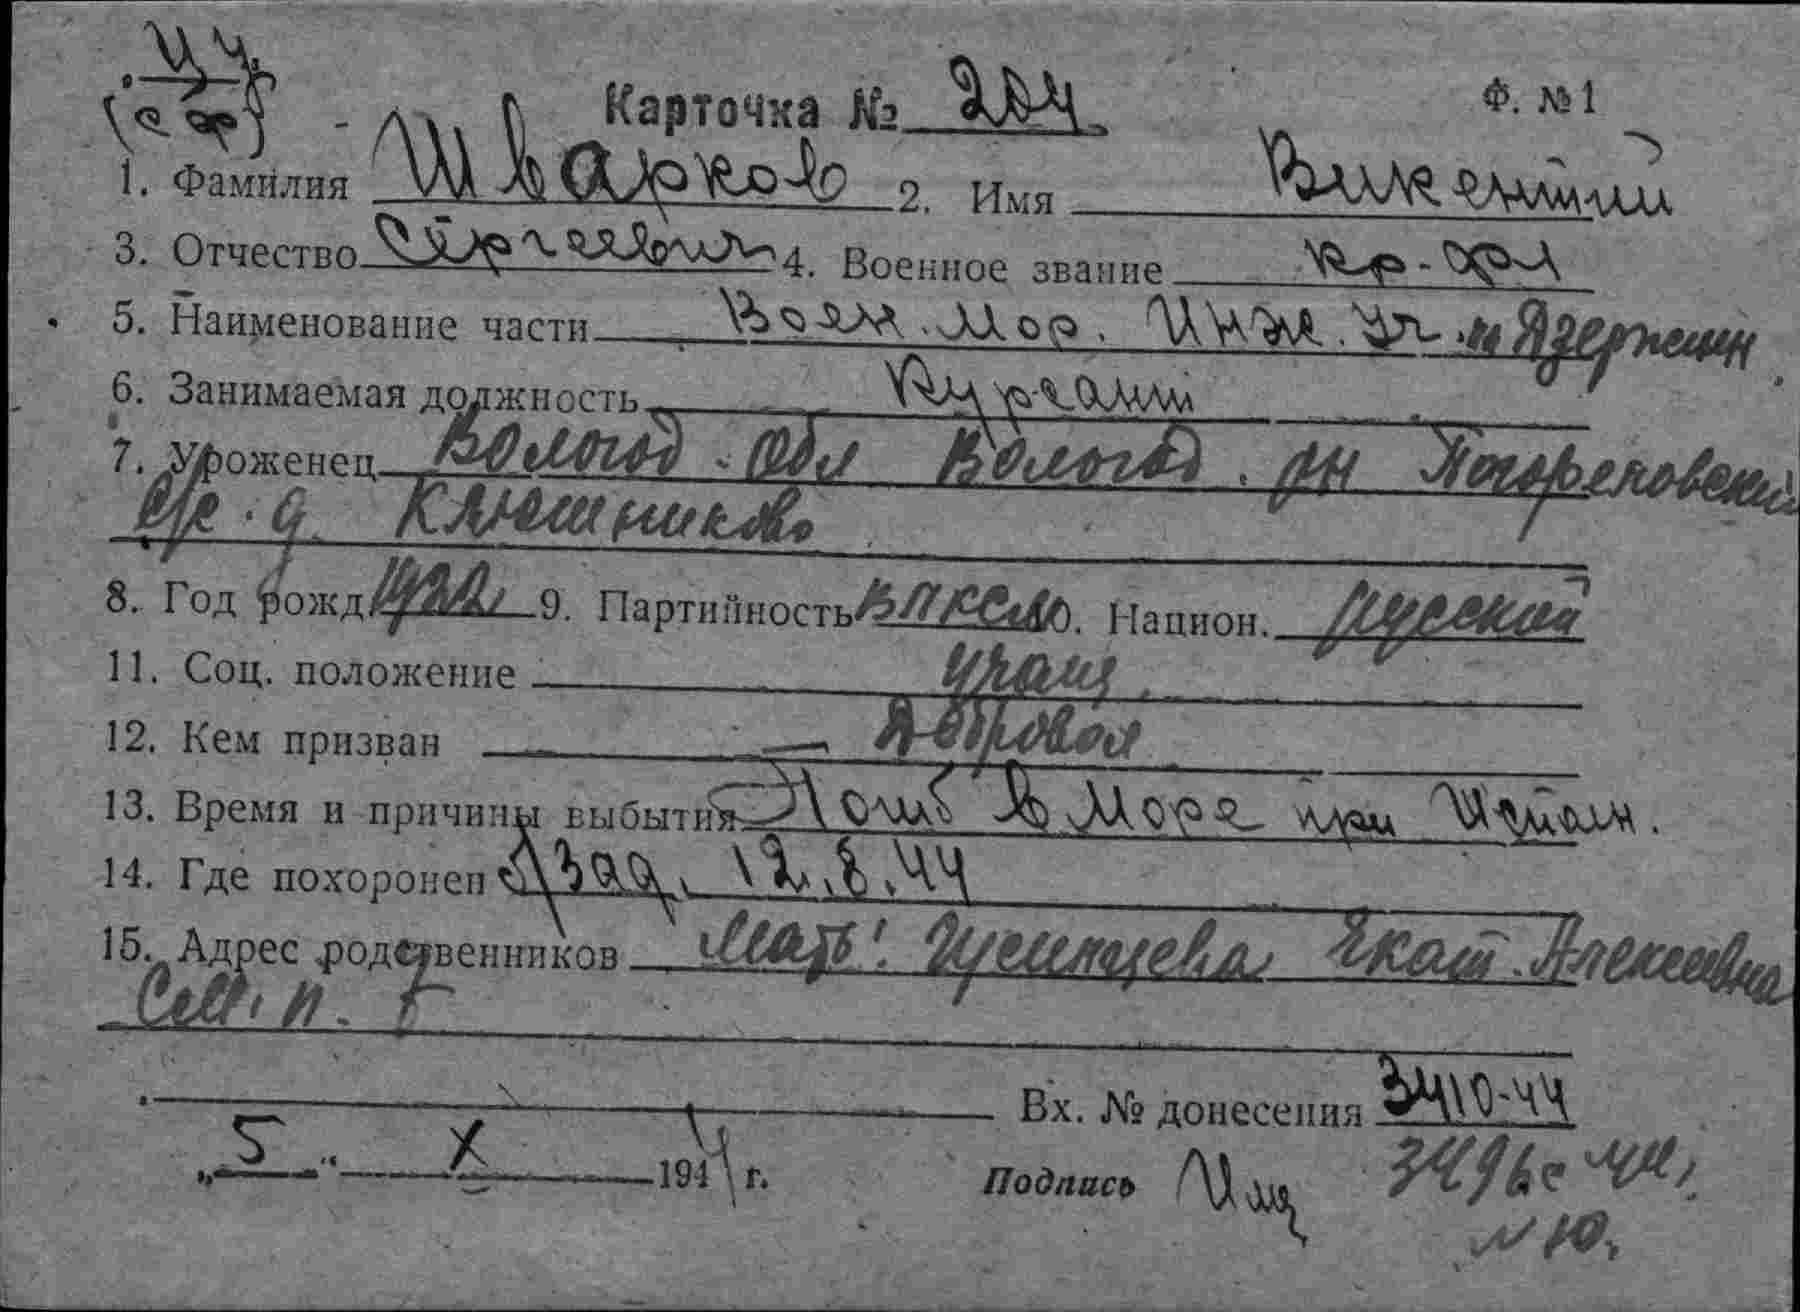 Карточка № 204 Ф. №1
1. Фамилия Шварков 2. Имя Викентий
3. Отчество Сергеевич 4. Военное звание кр-фл
5. Наименование части Воен. Мор. Инж. Уч. Дзержин
6. Занимаемая должность Курсант
7. Уроженец Вологод. обл Вологод. рн Погореловский
с/с. д. Клюшниково
8. Год рожд 1922 9. Партийность ВЛКСМ 10. Национ. Русский
11. Соц. положение учащ.
12. Кем призван Добровол
13. Время и причины выбытия Погиб в море при Исполн.
14. Где похоронен б/зад. 12.8.44
15. Адрес родственников Мать: Екат. Алексеевна
См. п. 7
Вх. № донесения 3410-44
„5" X 1944 г. Подпись 3496с